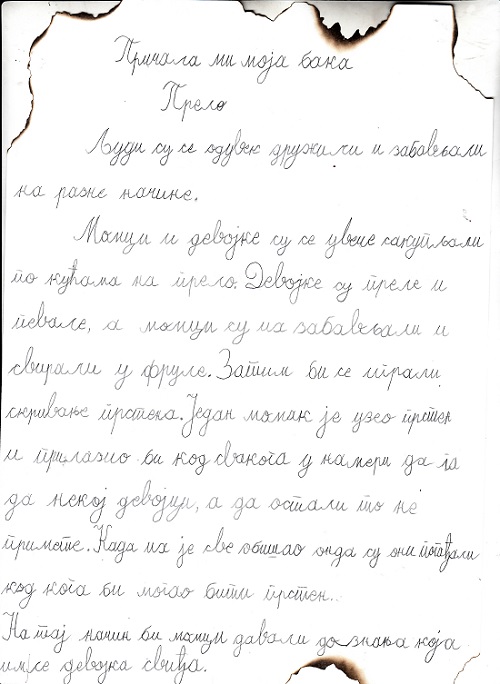 Причала ми моја бака
Прело
Људи су се одувек дружили и забављали
на разне начине.
Момци и девојке су се увече сакупљали
по кућама на прело. Девојке су преле и
певале, а момци су их забављали и
свирали у фруле. Затим би се играли
скривање прстена. Један момак је узео прстен
и прилазио би код свакога у намери да га
да некој девојци, а да остали то не
примете. Када их је све обишао онда су они погађали
код кога би могао бити прстен..
На тај начин би момци давали до знања која
им се девојка свиђа.